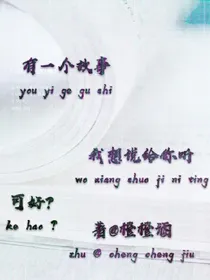 有一个故事
you yi ge gu shi
我想说给你听
wo xiang shuo ji ni ting
可好?
ke hao ?
著@橙橙酒
zhu @ cheng cheng jiu